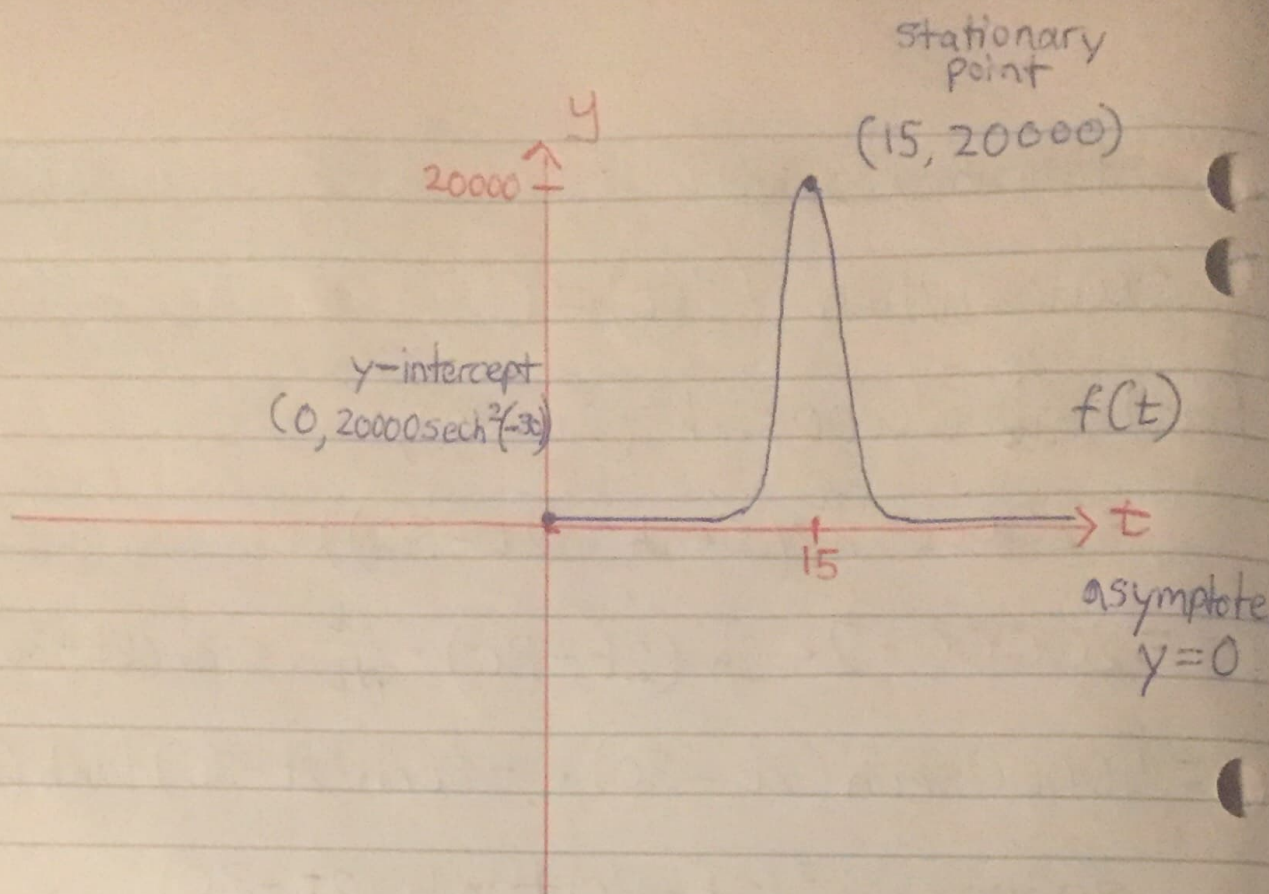 stationary
point
(15, 20000)
y
20000
y-intercept
(0, 20000sech²(-30)
f(t)
t
15
asymptote
y=0